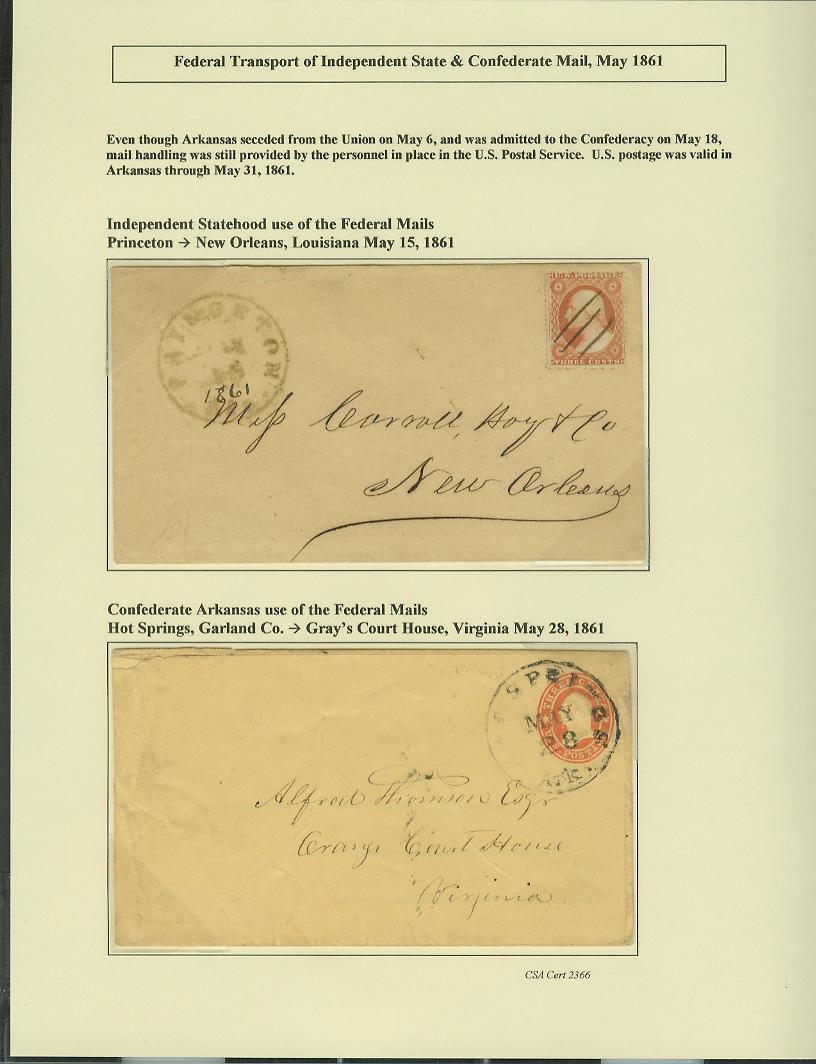 Federal Transport of Independent State & Confederate Mail, May 1861
Even though Arkansas seceded from the Union on May 6, and was admitted to the Confederacy on May 18,
mail handling was still provided by the personnel in place in the U.S. Postal Service. U.S. postage was valid in
Arkansas through May 31, 1861.
Independent Statehood use of the Federal Mails
Princeton → New Orleans, Louisiana May 15, 1861
U.S. POSTAGE
THREE CENTS
PRINCETON
1861
Carroll, Hoy & Co
New Orleans
Confederate Arkansas use of the Federal Mails
Hot Springs, Garland Co. → Gray's Court House, Virginia May 28, 1861
SPRINGS
MAY
8
Ark.
THREE
U.S. POSTAGE
Alfred Thomson Esqr
Orange Court House
Virginia
CSA Cert 2366